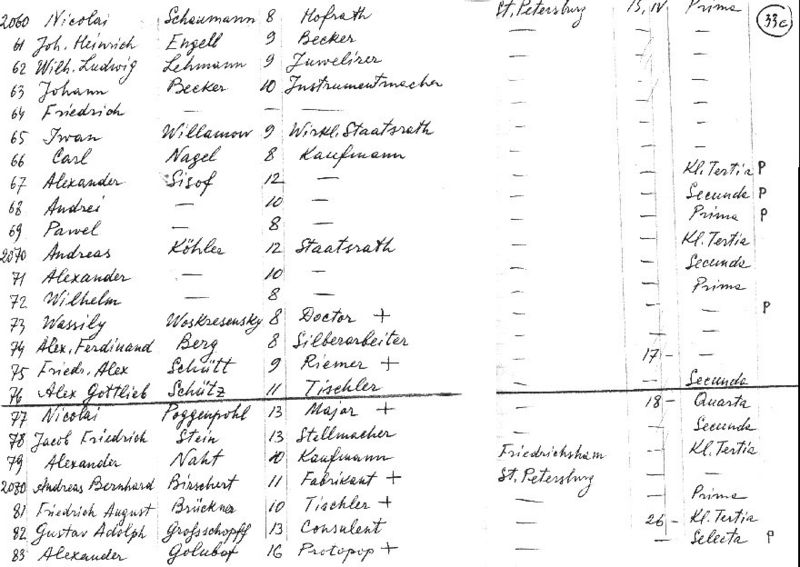 2060 Nicolai Schaumann 8 Hofrath St. Petersburg 13, IV Prima 33c
61 Joh. Heinrich Engell 9 Becker — — —
62 Wilh. Ludwig Lehmann 9 Juwelirer — — —
63 Johann Becker 10 Instrumentmacher — — —
64 Friedrich — — — — — —
65 Iwan Willamow 9 Wirkl. Staatsrath — — —
66 Carl Nagel 8 Kaufmann — — —
67 Alexander Sisof 12 — — — Kl. Tertia P
68 Andrei — 10 — — — Secunda P
69 Pawel — 8 — — — Prima P
2070 Andreas Köhler 12 Staatsrath — — Kl. Tertia
71 Alexander — 10 — — — Secunda
72 Wilhelm — 8 — — — Prima
73 Wassily Woskresensky 8 Doctor + — — — P
74 Alex. Ferdinand Berg 8 Silberarbeiter — — —
75 Friedr. Alex Schütt 9 Riemer + — 17 — —
76 Alex Gottlieb Schütz 11 Tischler — — Secunda
77 Nicolai Poggenpohl 13 Major + — 18 — Quarta
78 Jacob Friedrich Stein 13 Stellmacher — — Secunda
79 Alexander Naht 10 Kaufmann Friedrichsham — Kl. Tertia
2080 Andreas Bernhard Bieschert 11 Fabrikant + St. Petersburg — —
81 Friedrich August Brückner 10 Tischler + — — Prima
82 Gustav Adolph Grosschopff 13 Consulent — 26 — Kl. Tertia
83 Alexander Golubof 16 Protopop + — — Selecta P